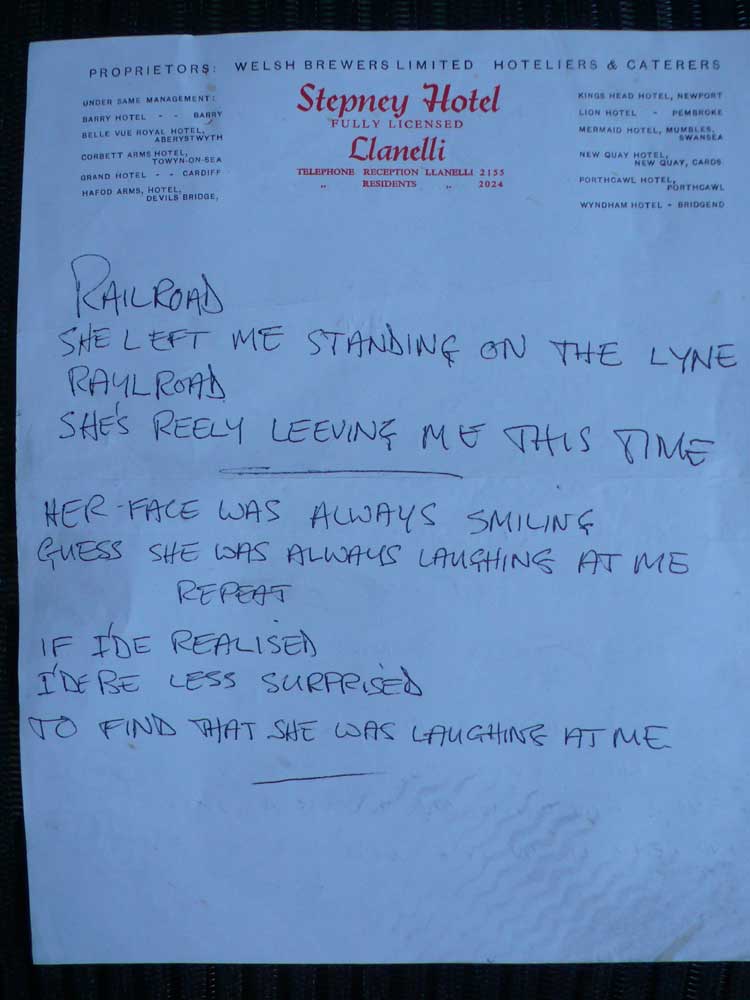 PROPRIETORS: WELSH BREWERS LIMITED HOTELIERS & CATERERS
UNDER SAME MANAGEMENT:
BARRY HOTEL - - BARRY
BELLE VUE ROYAL HOTEL,
ABERYSTWYTH
CORBETT ARMS HOTEL,
TOWYN-ON-SEA
GRAND HOTEL - - CARDIFF
HAFOD ARMS, HOTEL,
DEVILS BRIDGE,
Stepney Hotel
FULLY LICENSED
Llanelli
TELEPHONE RECEPTION LLANELLI 2155
„ RESIDENTS „ 2024
KINGS HEAD HOTEL, NEWPORT
LION HOTEL - PEMBROKE
MERMAID HOTEL, MUMBLES,
SWANSEA
NEW QUAY HOTEL,
NEW QUAY, CARDS.
PORTHCAWL HOTEL,
PORTHCAWL
WYNDHAM HOTEL - BRIDGEND
RAILROAD
SHE LEFT ME STANDING ON THE LYNE
RAYLROAD
SHE'S REELY LEEVING ME THIS TIME
HER FACE WAS ALWAYS SMILING
GUESS SHE WAS ALWAYS LAUGHING AT ME
REPEAT
IF I'DE REALISED
I'DE BE LESS SURPRISED
TO FIND THAT SHE WAS LAUGHING AT ME